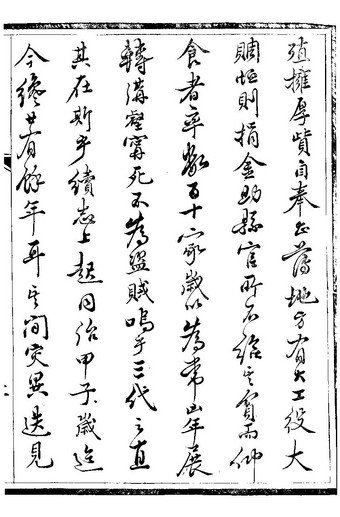 殖擁厚貲自奉公薄地方有大工役大
賙恤則捐金助縣官所不給其實而仰
食者率數百十家歲以為常凶年展
轉溝壑寧死不為盜賊嗚乎三代之直
其在斯乎續志上起同治甲子歲迄
今纔廿有餘年耳其間災異迭見